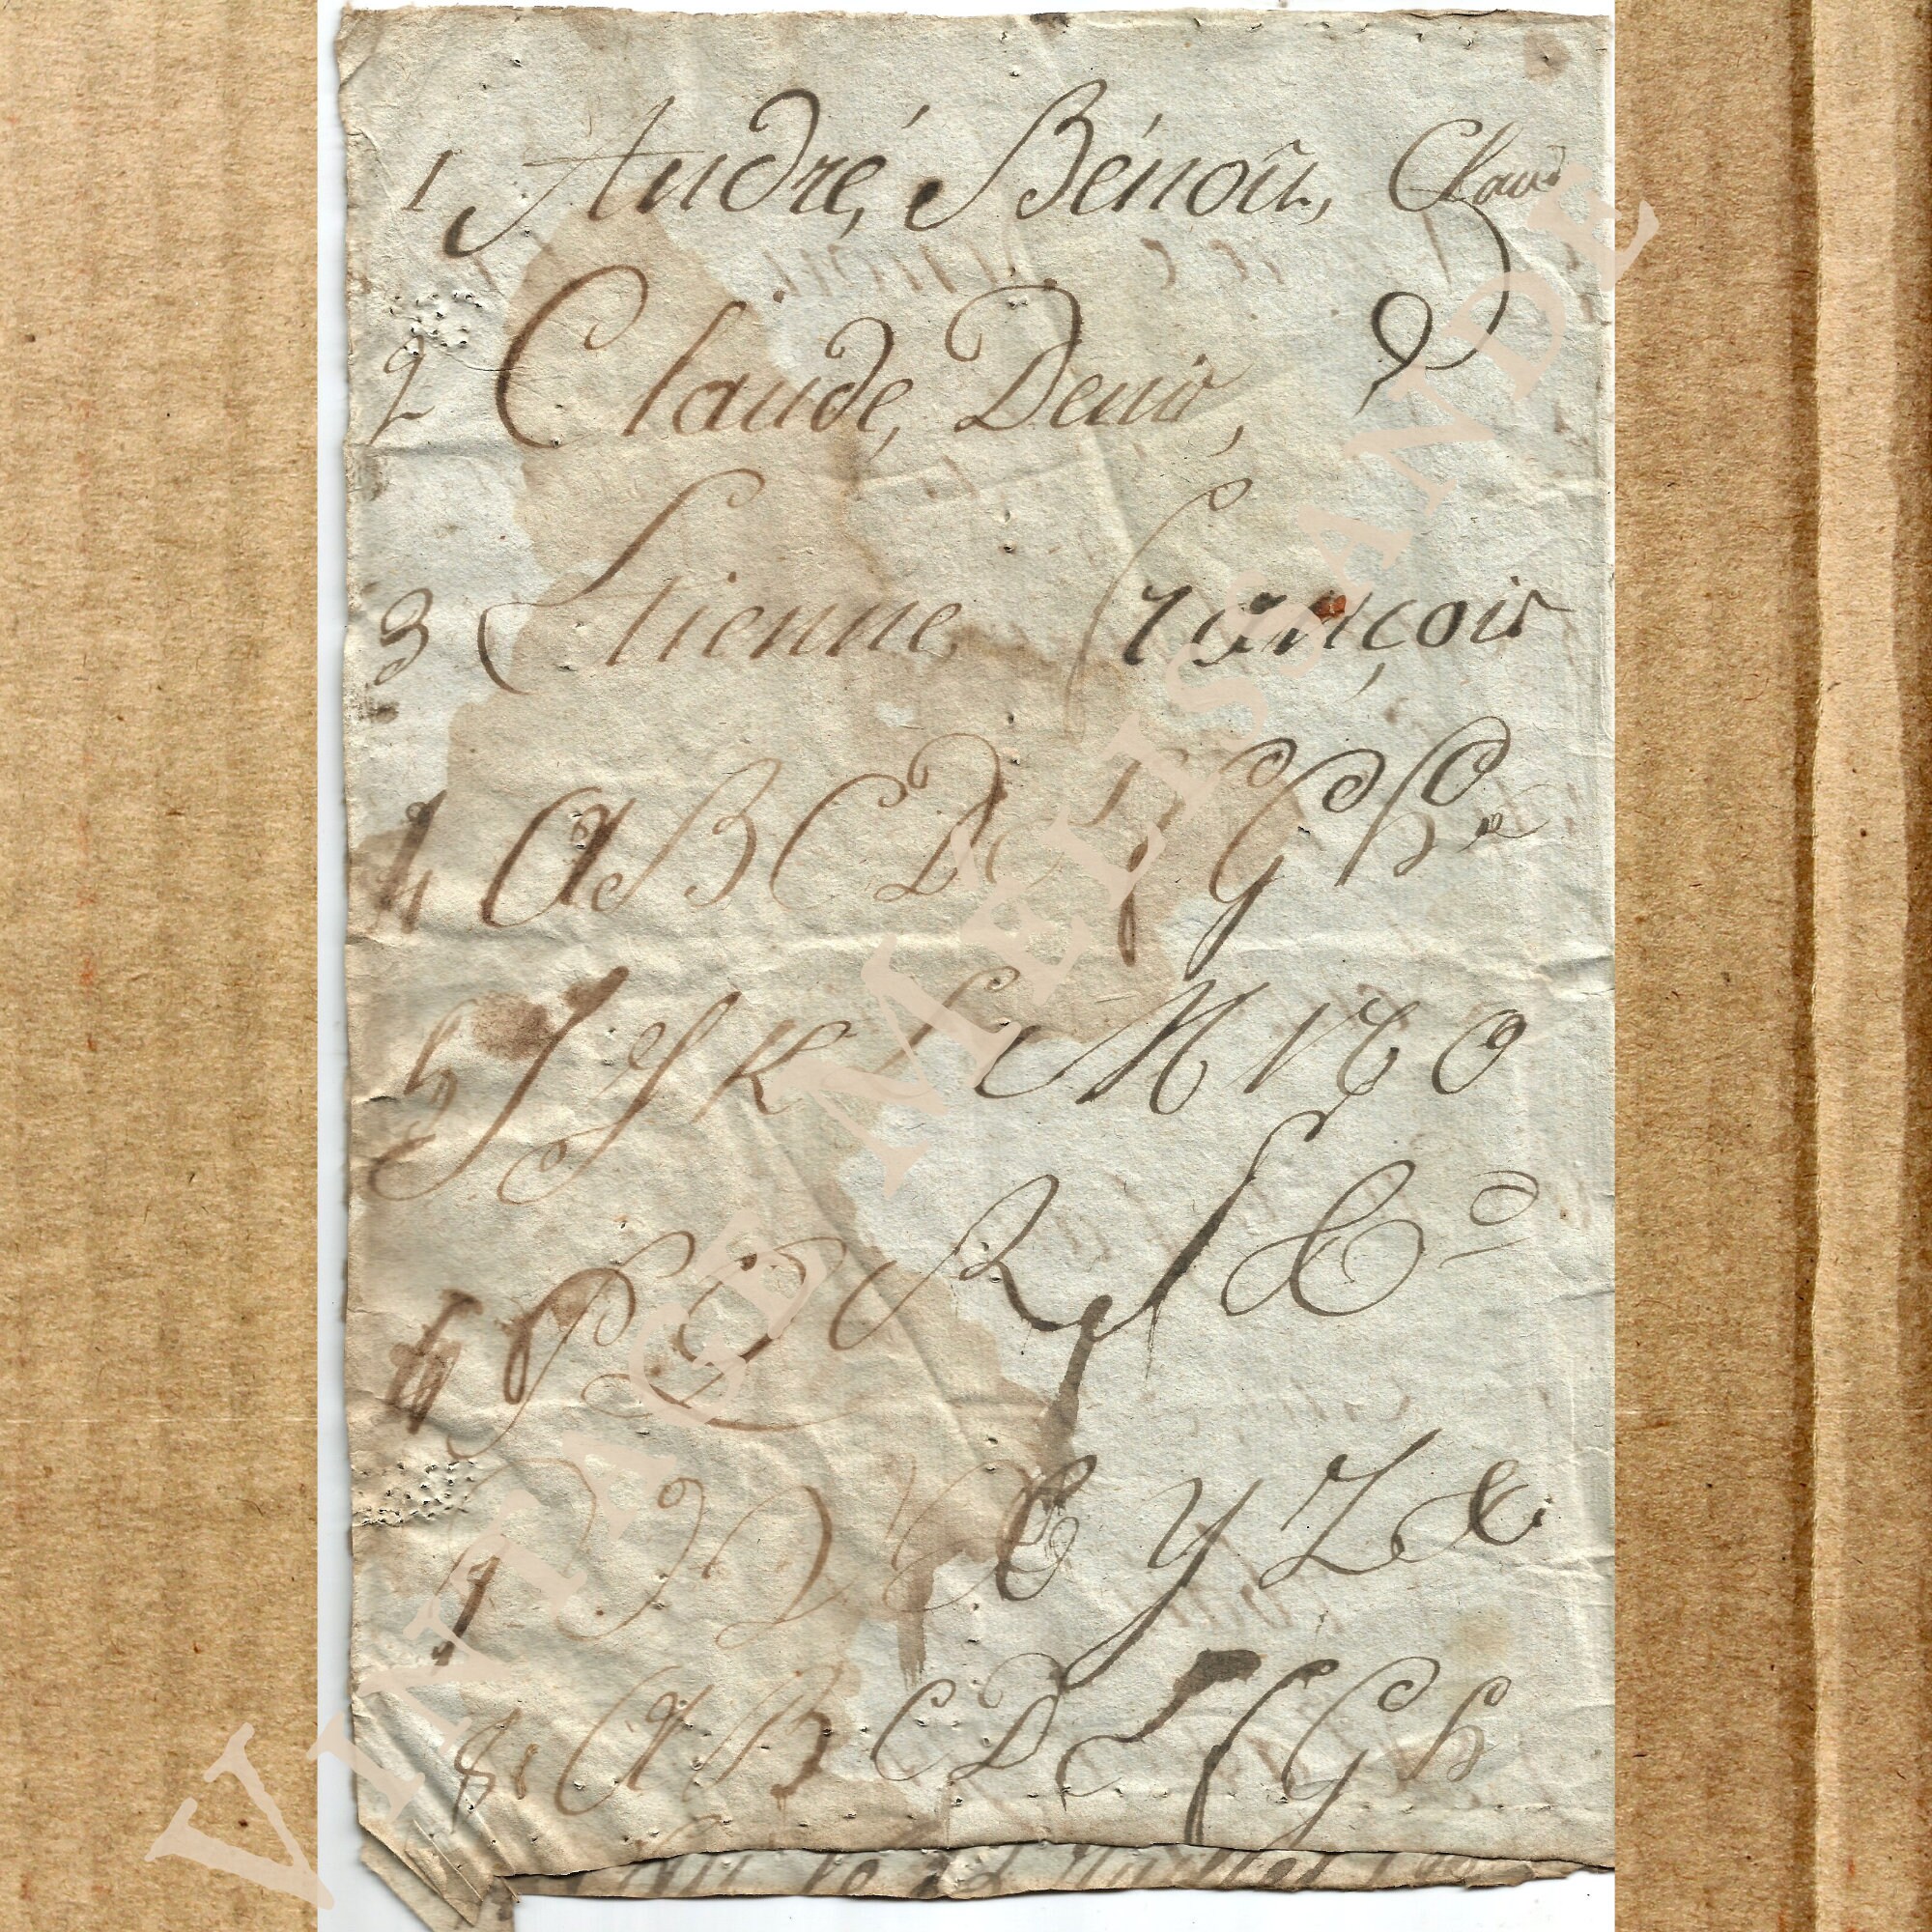 1 André, Bénoît, Claud
2 Claude, Denis,
3 Etienne François
4 A B C D E F G H &
5 I J K L M N O
P Q R S &
V X Y Z &
8 A B C D E F G H
VINTAGE MELISSANDE